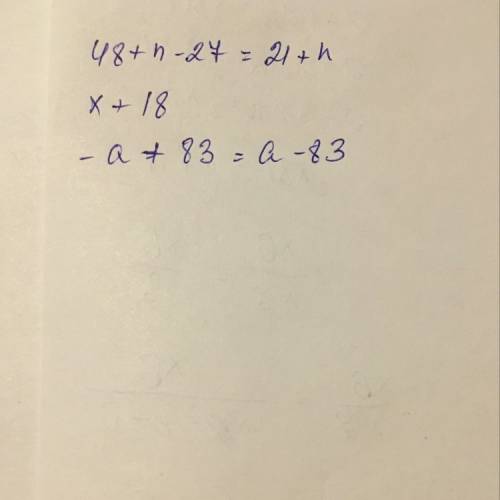 48+n-27=21+n
x+18
-a+83=a-83